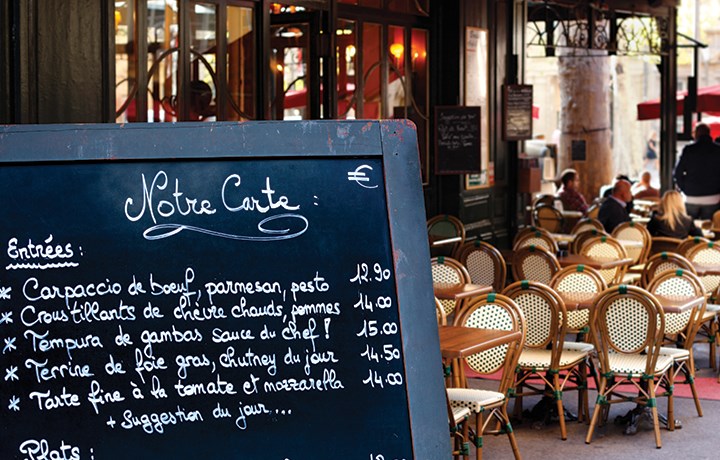 Notre Carte : €
Entrées :
* Carpaccio de bœuf, parmesan, pesto 12.90
* Croustillants de chèvre chauds, pommes 14.00
* Tempura de gambas sauce du chef ! 15.00
* Terrine de foie gras, chutney du jour 14.50
* Tarte fine à la tomate et mozzarella 14.00
+ Suggestion du jour...
Plats :